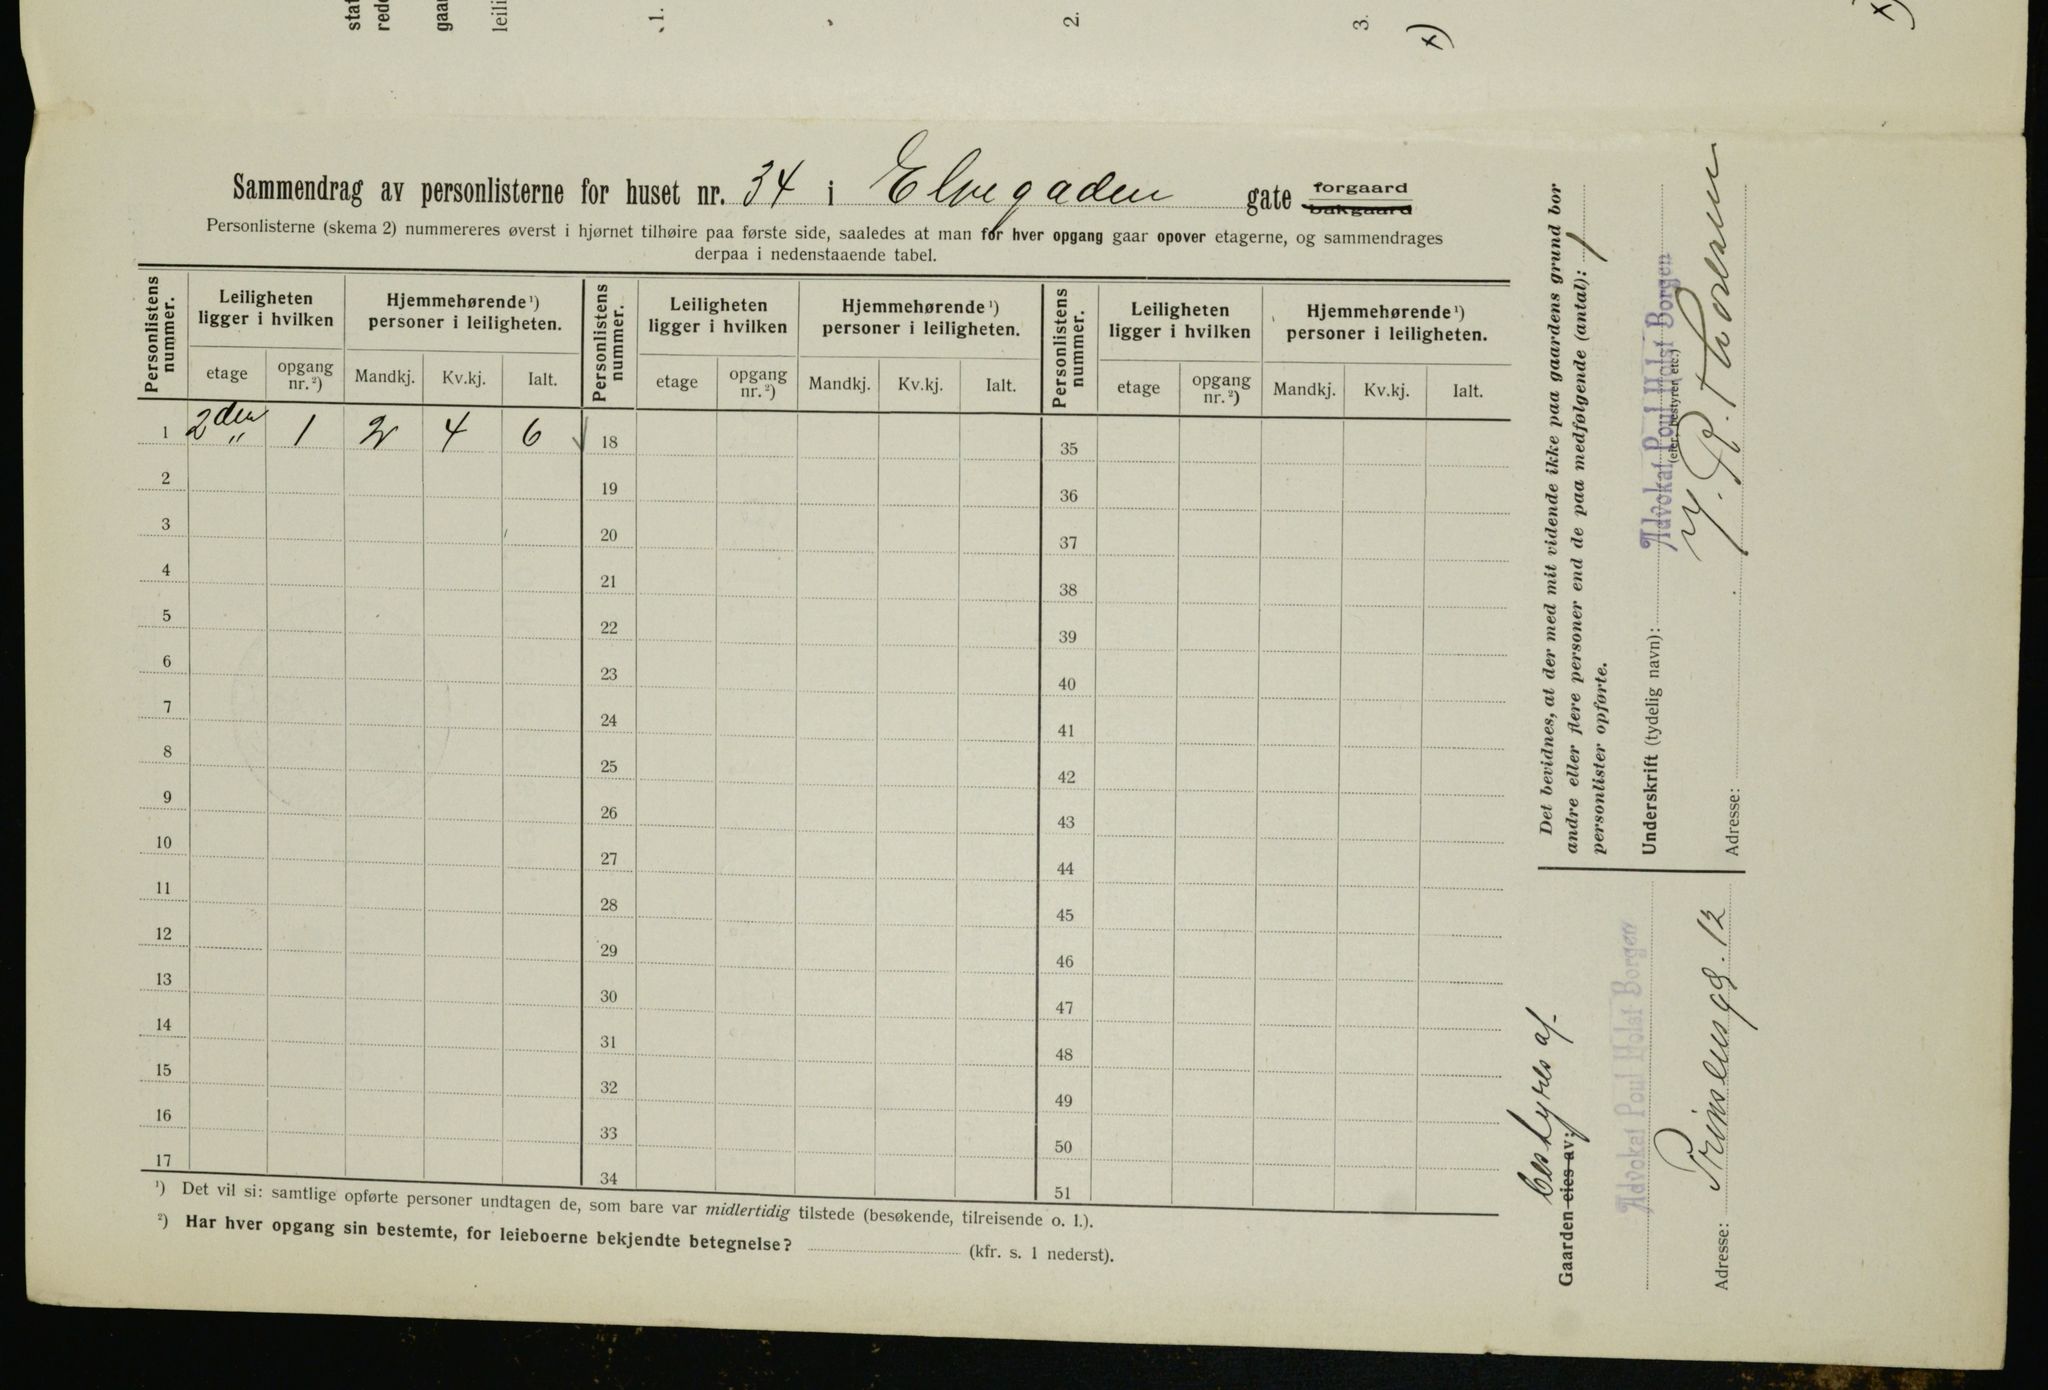 stat
rede
gaar
leili
1.
2.
3.
x)
x)
Sammendrag av personlisterne for huset nr. 34 i Elvegaden gate forgaard bakgaard
Personlisterne (skema 2) nummereres øverst i hjørnet tilhøire paa første side, saaledes at man for hver opgang gaar opover etagerne, og sammendrages
derpaa i nedenstaaende tabel.
Personlistens nummer.
Leiligheten ligger i hvilken
Hjemmehørende ¹) personer i leiligheten.
Personlistens nummer.
Leiligheten ligger i hvilken
Hjemmehørende ¹) personer i leiligheten.
Personlistens nummer.
Leiligheten ligger i hvilken
Hjemmehørende ¹) personer i leiligheten.
etage opgang nr. ²) Mandkj. Kv.kj. Ialt. etage opgang nr. ²) Mandkj. Kv.kj. Ialt. etage opgang nr. ²) Mandkj. Kv.kj. Ialt.
1 2den 1 2 4 6 18 35
2 19 36
3 20 37
4 21 38
5 22 39
6 23 40
7 24 41
8 25 42
9 26 43
10 27 44
11 28 45
12 29 46
13 30 47
14 31 48
15 32 49
16 33 50
17 34 51
¹) Det vil si: samtlige opførte personer undtagen de, som bare var midlertidig tilstede (besøkende, tilreisende o. l.).
²) Har hver opgang sin bestemte, for leieboerne bekjendte betegnelse? (kfr. s. 1 nederst).
Det bevidnes, at der med mit vidende ikke paa gaardens grund bor
andre eller flere personer end de paa medfølgende (antal): 1
personlister opførte.
Underskrift (tydelig navn): Advokat Poul Holst Borgen
(eier, bestyrer etc.)
Adresse:
bestyres af
Gaarden eies av:
Advokat Poul Holst Borgen
Adresse: Prinsensg. 12